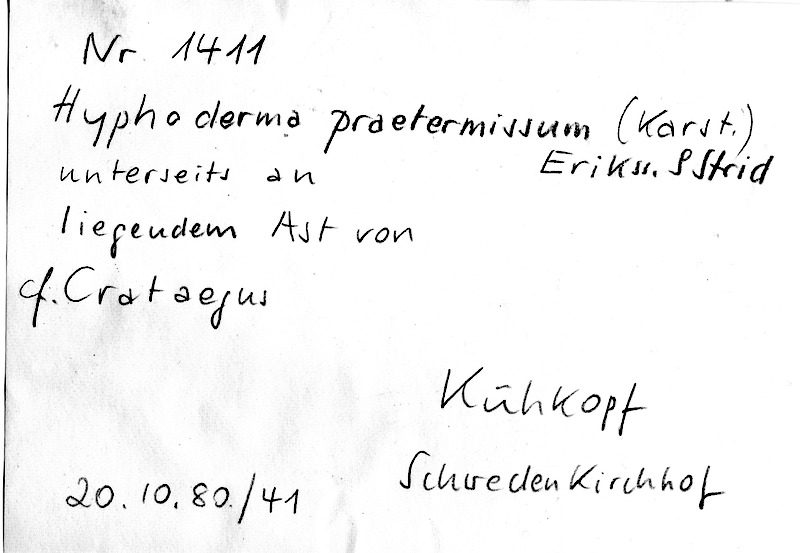 Nr 1411
Hyphoderma praetermissum (Karst.)
Erikss. & Strid
unterseits an
liegendem Ast von
cf. Crataegus
Kühkopf
Schwedenkirchhof
20.10.80/41